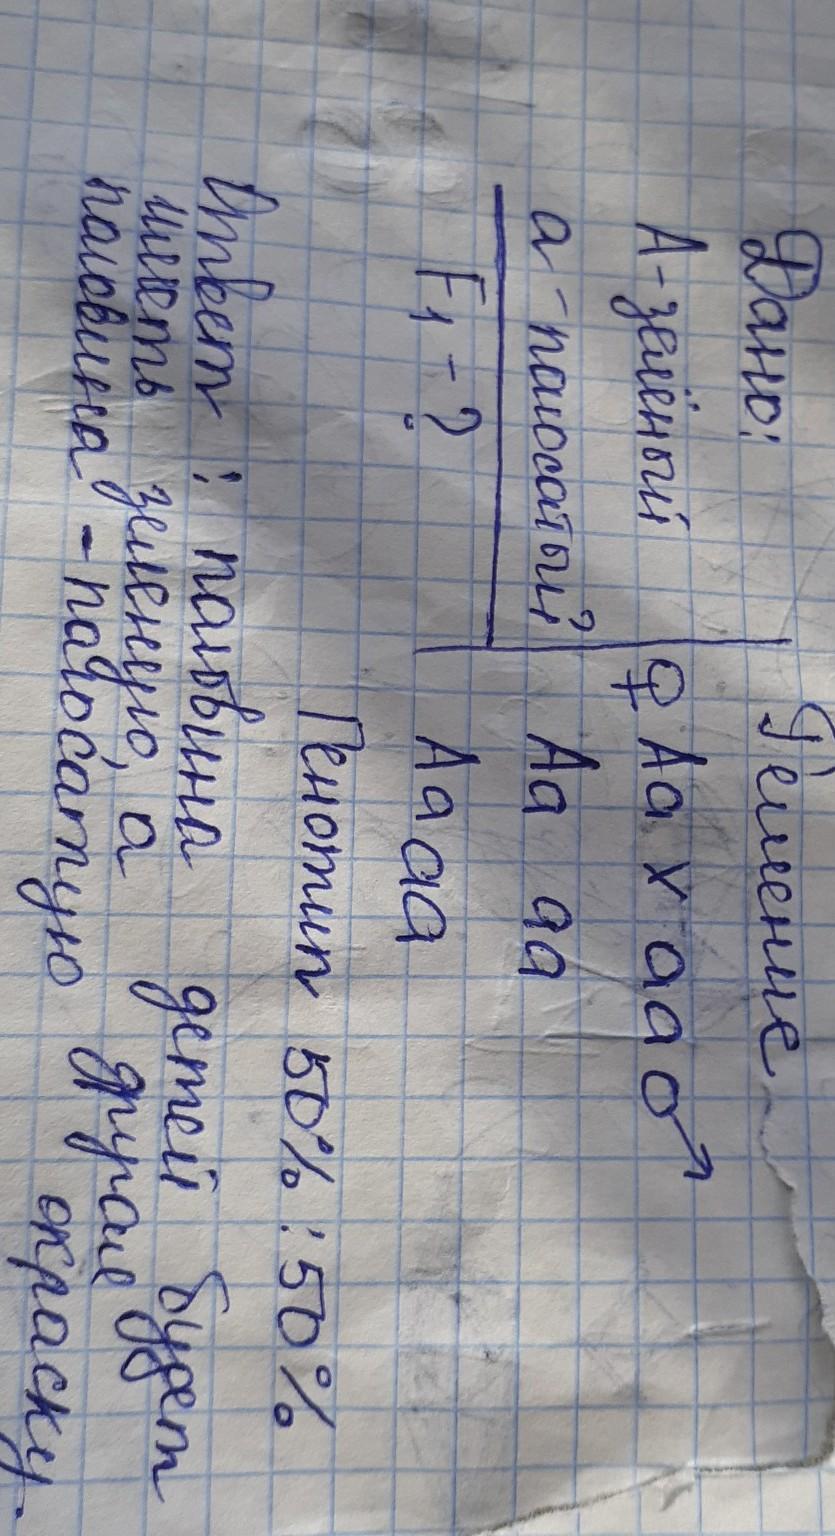 Дано:
А-зелёный
а-полосатый
F₁-?
Решение
♀ Аа х аа ♂
Аа аа
Аа аа
Генотип 50% : 50%
Ответ : половина детей будет
иметь зеленую, а другая
половина - полосатую окраску.